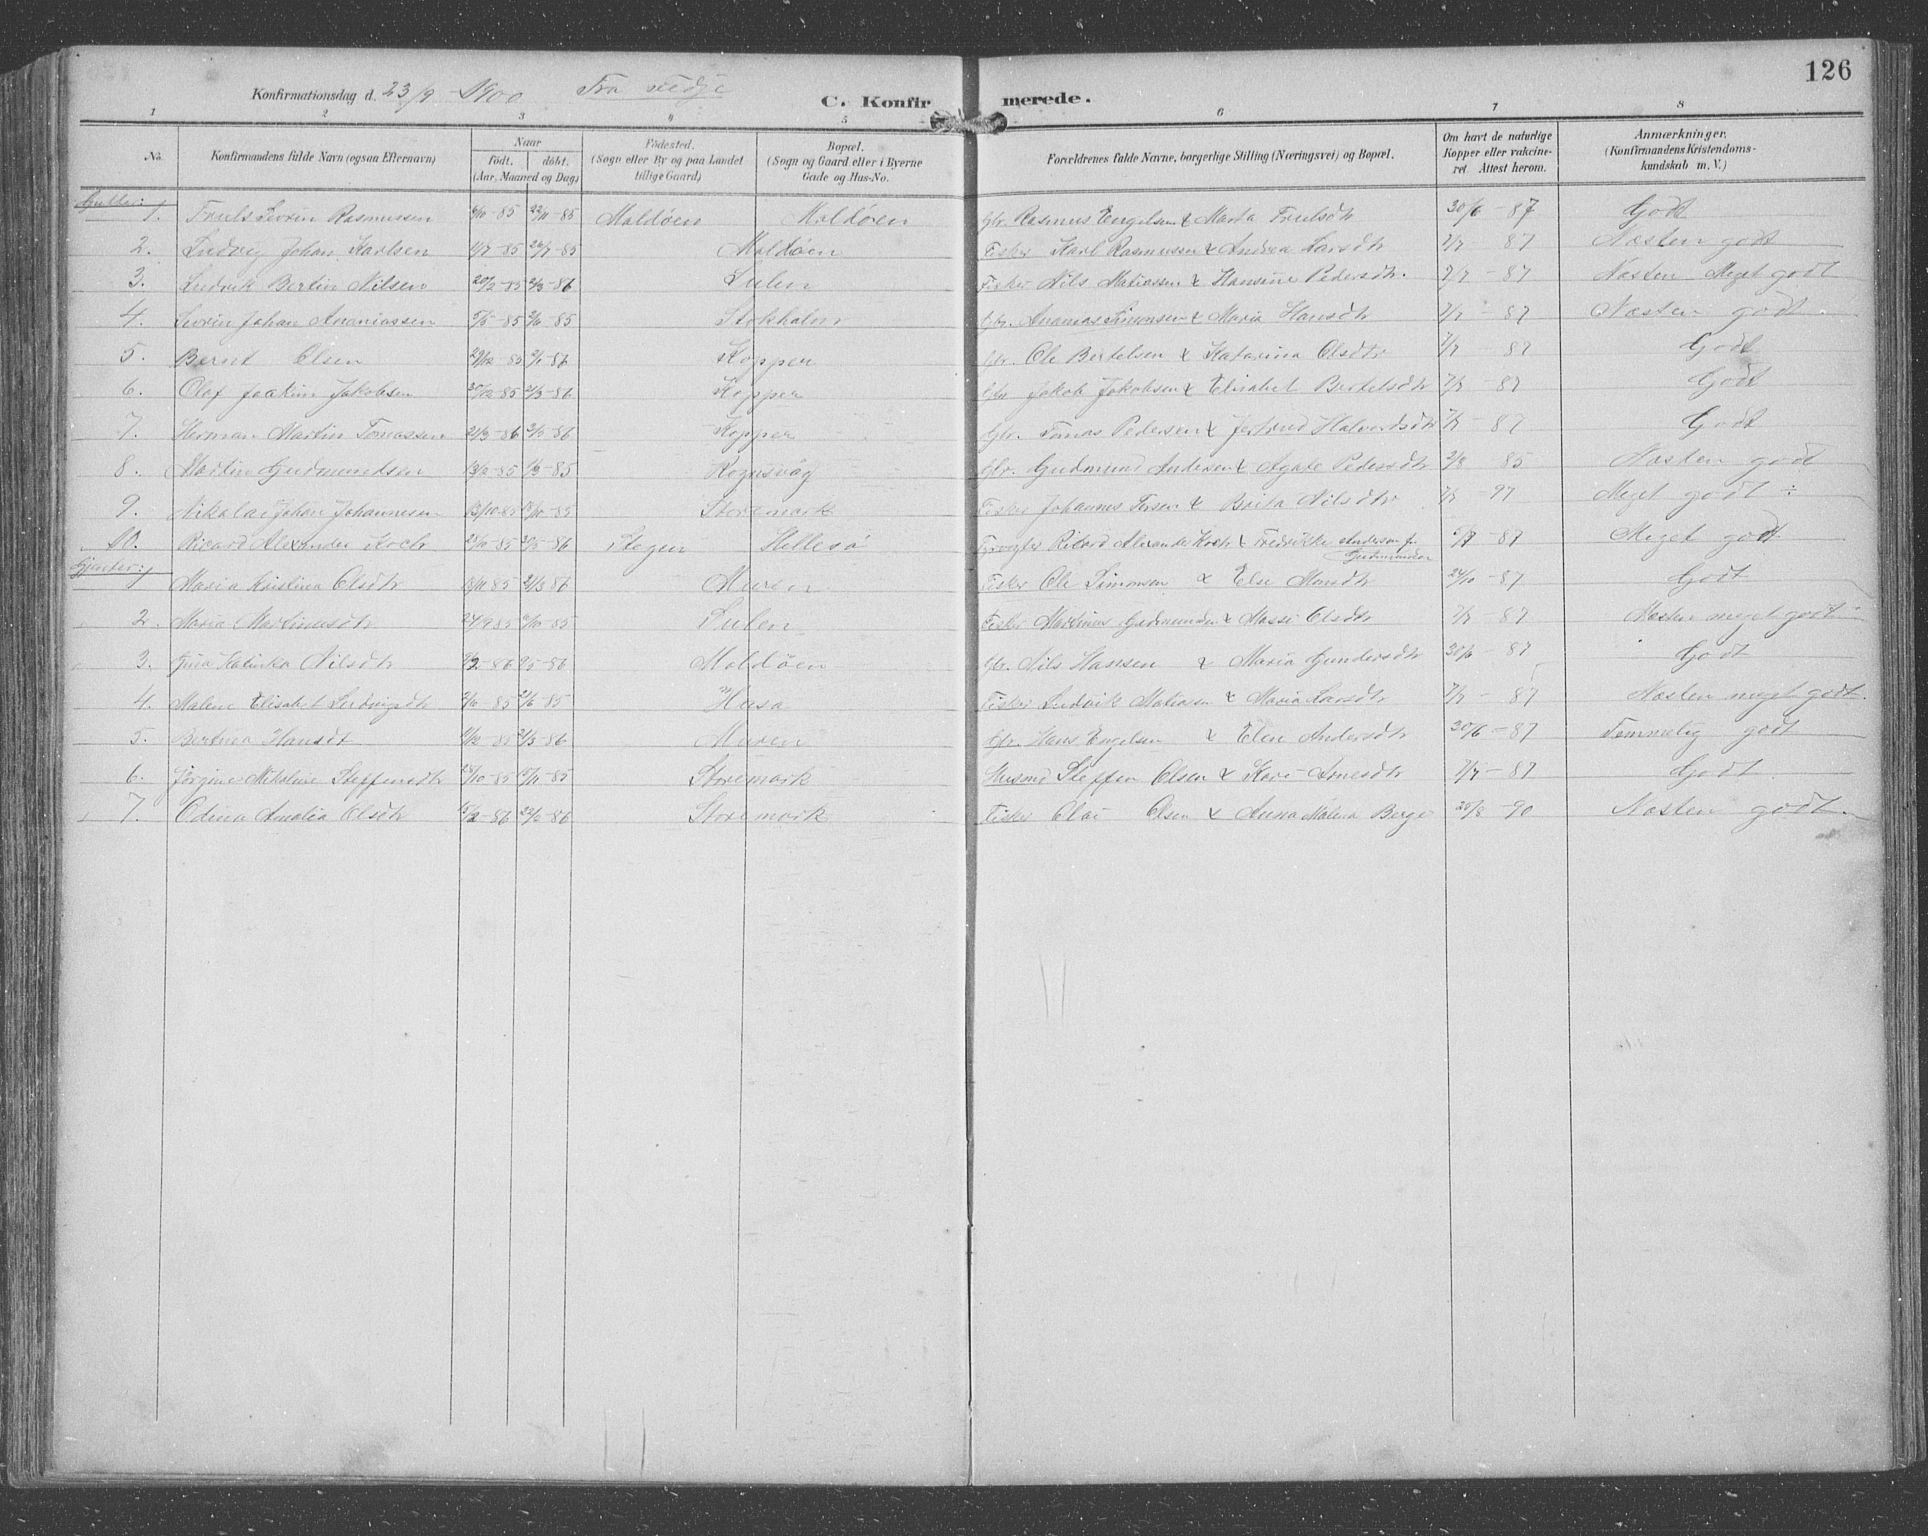 126
Konfirmationsdag d. 23/9 1900 Fra Hedje C. Konfirmerede.
1 2 3 4 5 6 7 8
No. Konfirmandens fulde Navn (ogsaa Efternavn) Naar født. døbt. (Aar, Maaned og Dag) Fødested. (Sogn eller By og paa Landet tillige Gaard) Bopæl. (Sogn og Gaard eller i Byerne Gade og Hus-No. Forældrenes fulde Navne, borgerlige Stilling (Næringsvei) og Bopæl. Om havt de naturlige Kopper eller vakcineret. Attest herom. Anmærkninger. (Konfirmandens Kristendomskundskab m. V.)
Gutter:
1. Truls Sevrin Rasmussen /10-85 22/11-85 Moldøen Moldøen Gbr. Rasmus Engelsen & Marta Trulsdtr 30/6-87 Godt
2. Ludvig Johan Karlsen 1/7-85 26/7-85 Moldøen Fisker Karl Rasmussen & Andrea Larsdtr 7/7-87 Næsten godt
3. Ludvik Bertin Nilsen 20/12-85 /3-86 Sulen Fisker Nils Matiassen & Hansine Pedersdtr. 7/7-87 Næsten Meget godt
4. Sevrin Johan Ananiassen /5-85 /6-85 Stokholm Gbr. Ananias Simonsen & Maria Hansdtr 7/7-87 Næsten godt
5. Bernt Olsen 29/12-85 /1-86 Kopper Gbr. Ole Bertelsen & Katarina Olsdtr 7/7-87 Godt
6. Olaf Joakim Jakobsen 30/12-85 /3-86 Kopper Gbr. Jakob Jakobsen & Elisabet Bertelsdtr 7/7-87 Godt
7. Herman Martin Tomassen 21/3-86 /5-86 Kopper Gbr. Tomas Pedersen & Jertrud Halvordsdtr 7/7-87 Godt
8. Martin Gudmundsen 13/2-85 1/3-85 Rognsvåg Gbr. Gudmund Andersen & Agate Pedersdtr 2/8-85 Næsten godt
9. Nikolai Johan Johannesen 13/10-85 /10-85 Storemark Fisker Johannes Iversen & Brita Nilsdtr 7/7-97 Meget godt ÷
10. Ricard Alexander Koch 25/10-85 30/5-86 Stegen Hellesø Fyrvogter Ricard Alexander Koch & Fredrikke Anderson f. Gudmundsen /7-87 Meget godt
Gjenter:
1 Maria Kristina Olsdtr 13/11 85 21/3 86 Muren Fisker Ole Simonsen & Else Hansdtr 24/10-87 Godt
2. Maria Martinusdtr 24/9 85 /10-85 Sulen Fisker Martinus Gudmundsen & Massi Olsdtr 7/7-87 Næsten meget godt
3. Gina Katinka Nilsdtr /2-86 /5-86 Moldøen Gbr. Nils Hansen & Maria Gundersdtr 30/6-87 Godt
4. Malene Elisabet Ludvigsdtr /6-85 /6-85 Husa Fisker Ludvik Matiasen & Maria Larsdtr 7/7-87 Næsten meget godt.
5. Bertina Hansdt /12-85 /3-86 Muren Gbr. Hans Engelsen & Elen Andersdtr 30/6-87 Temmelig godt
6. Jørgine Nikoline Steffensdtr 25/10-85 15/11-85 Storemark Husmd Steffen Olsen & Kari Arnesdtr 7/7-87 Godt
7. Odina Amalia Olsdtr 15/2-86 22/2-86 Storemark Fisker Olai Olsen & Anna Malena Berge 20/8-90 Næsten godt.